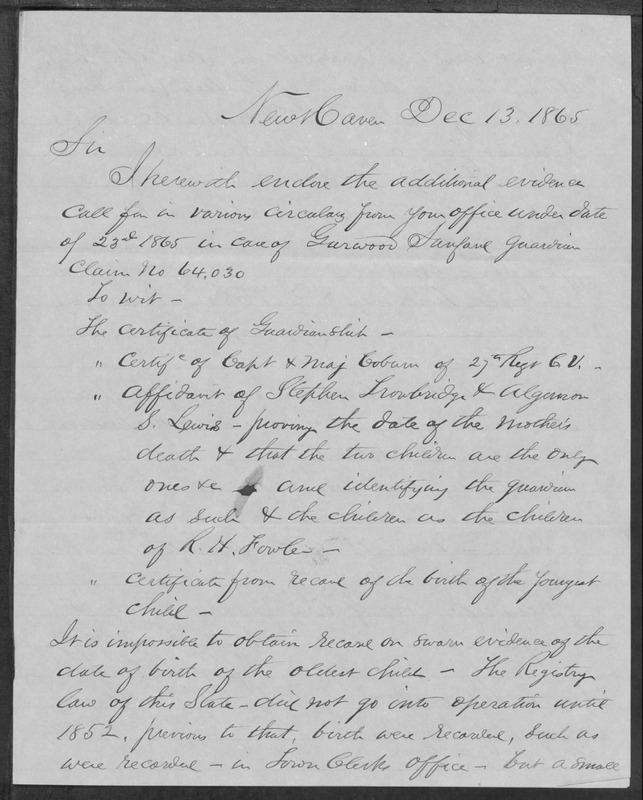 New Haven Dec 13. 1865
Sir
I herewith enclose the additional evidence
call for in various circulars from your office under date
of 23d 1865 in case of Gurwood Sanfane guardian
Claim No 64,030
To wit -
The certificate of Guardianship -
" Certifc of Capt & Maj Coburn of 27th Regt C.V. -
" Affidavit of Stephen Trowbridge & Algernon
S. Lewis - proving the date of the mothers
death & that the two children are the only
ones &c and identifying the guardian
as such & the children as the children
of R. H. Fowler -
" Certificate from record of the birth of the youngest
child -
It is impossible to obtain record or sworn evidence of the
date of birth of the oldest child - The Registry
law of this State - did not go into operation until
1852, previous to that, birth were recorded, such as
were recorded - in Town Clerks office - but a small